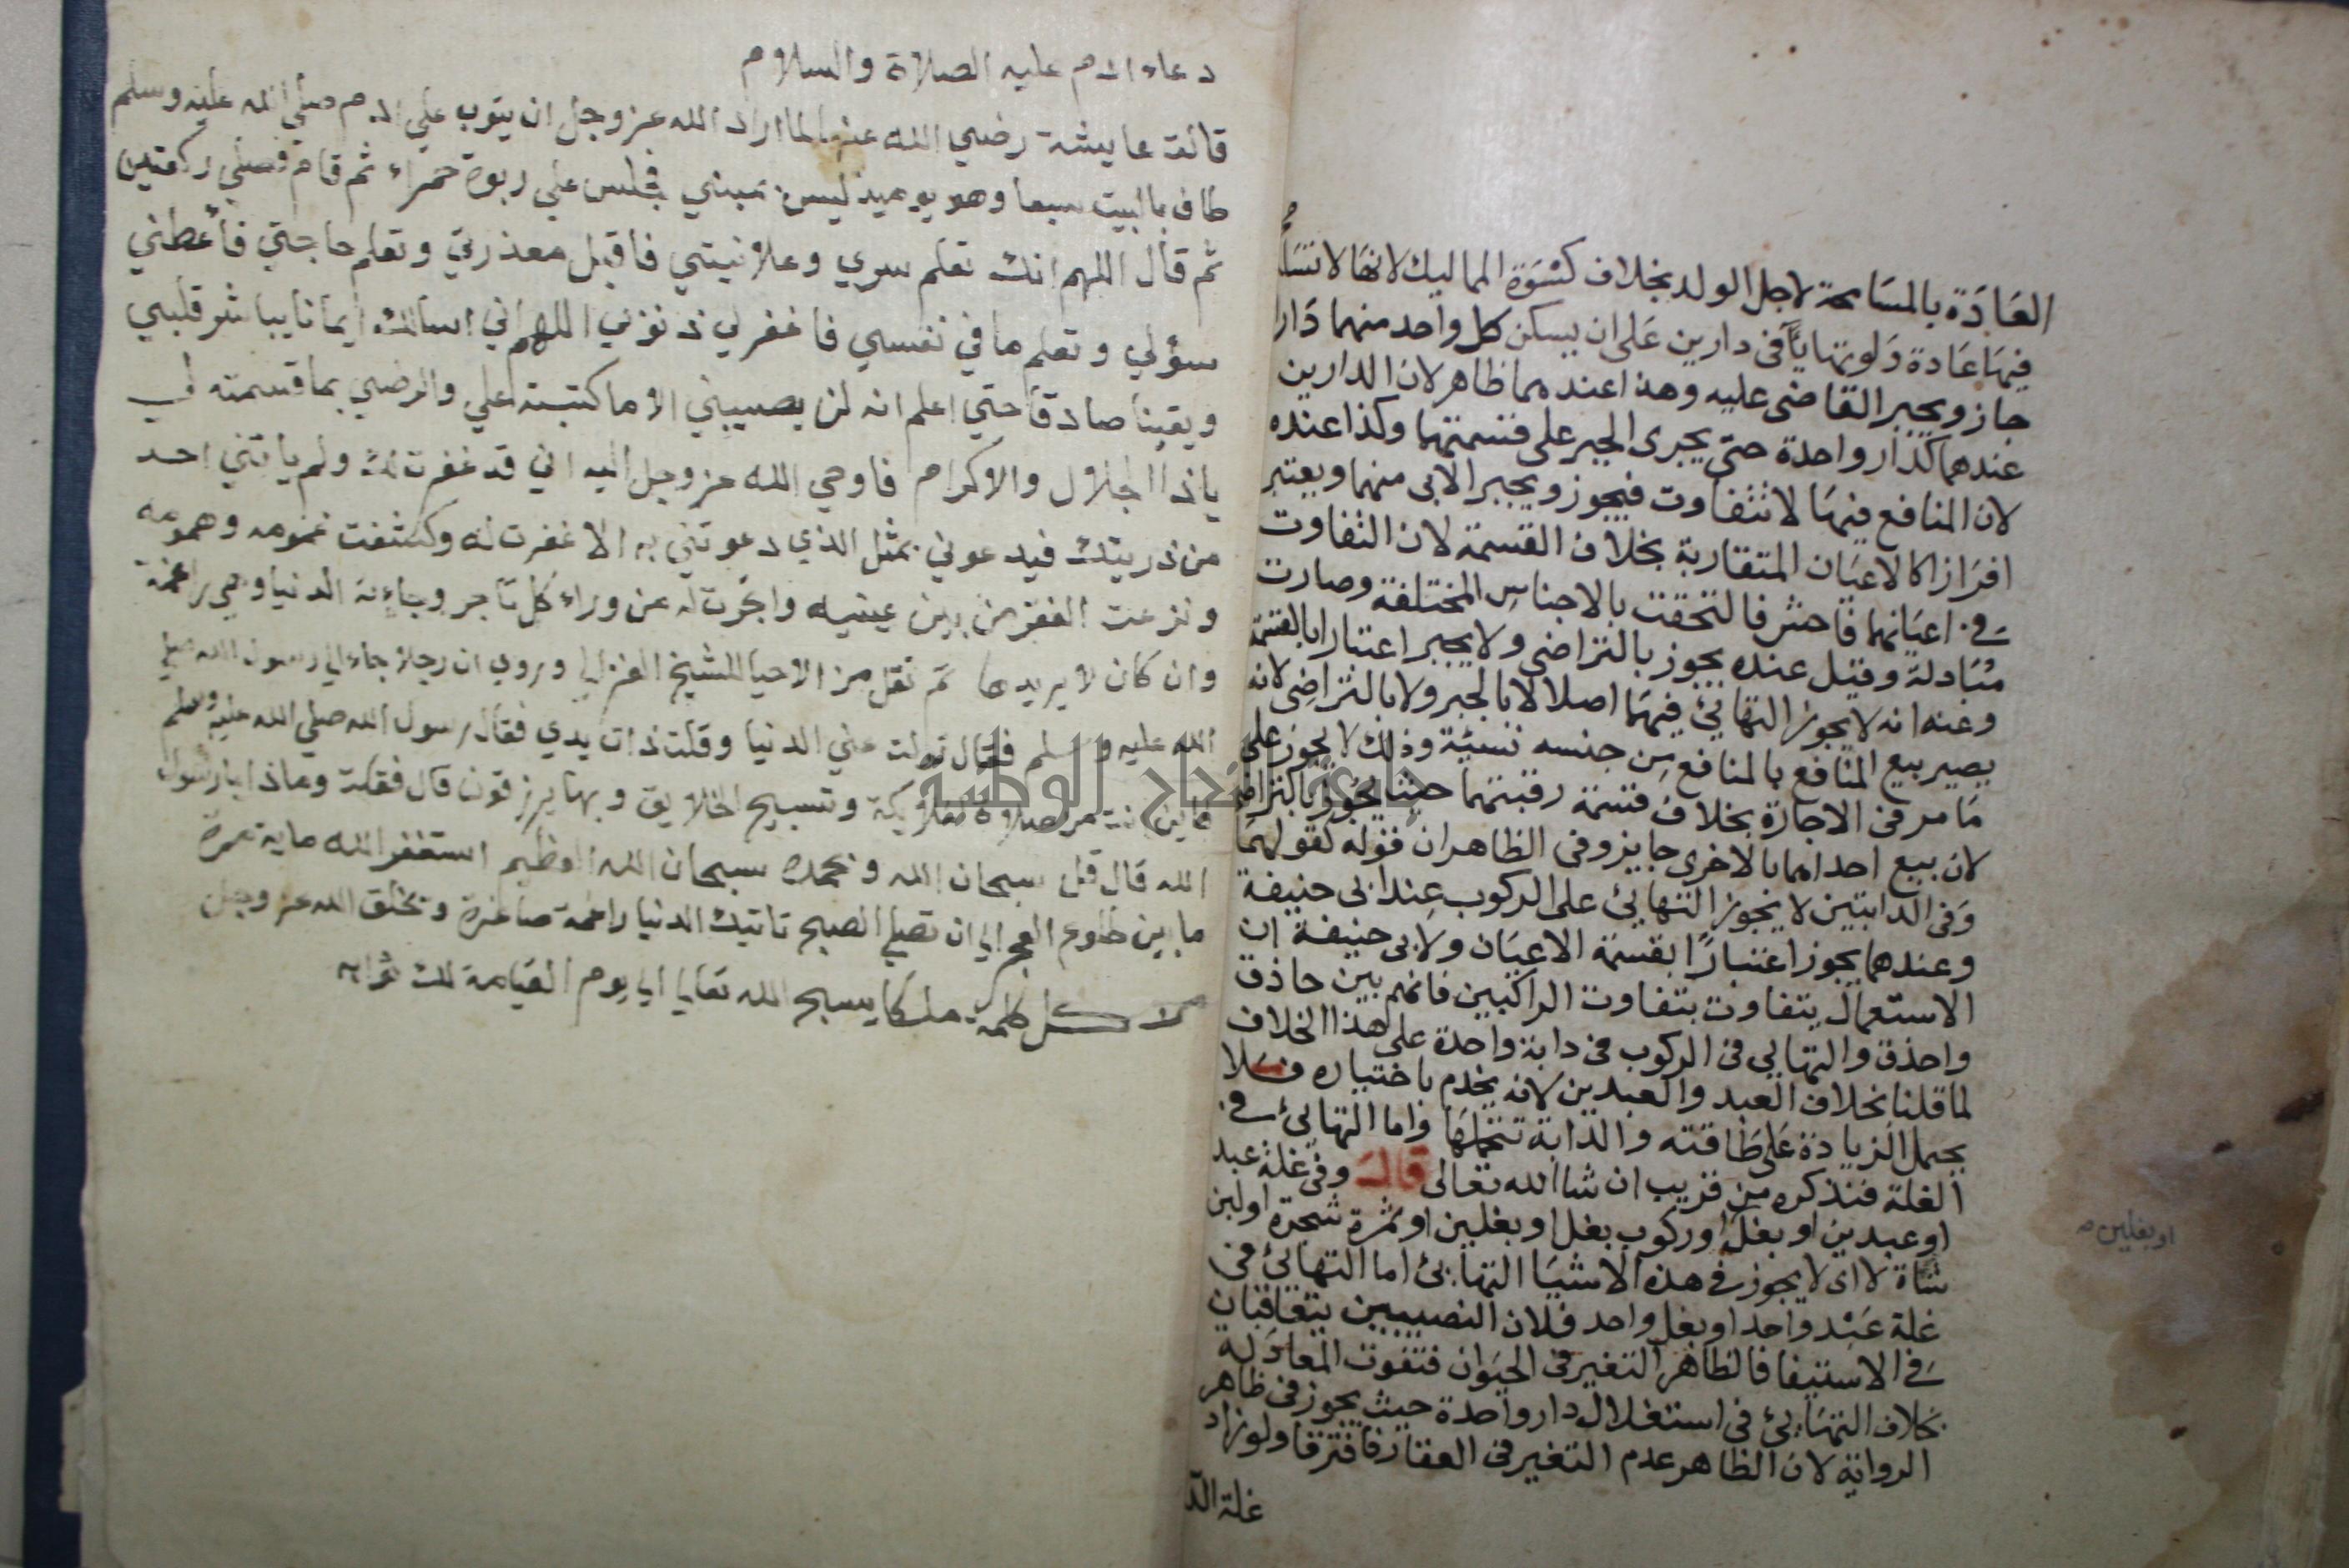 العادة بالمسامحة لاجل الولد بخلاف كسوة المماليك لانها لا تتسا
فيها عادة ولو تهايآ فى دارين على ان يسكن كل واحد منهما دارا
جاز ويجبر القاضى عليه وهذا عندهما ظاهر لان الدارين
عندهما كدار واحدة حتى يجرى الجبر على قسمتهما وكذا عنده
لان المنافع فيها لا تتفاوت فيجوز ويجبر الابى منهما ويعتبر
افرازا كالاعيان المتقاربة بخلاف القسمة لان التفاوت
فى اعيانهما فاحش فالتحقت بالاجناس المختلفة وصارت
مبادلة وقيل عنده يجوز بالتراضى ولا يجبر اعتبارا بالقسمة
وعنه انه لا يجوز التهائئ فيهما اصلا لا بالجبر ولا بالتراضى لانه
يصير بيع المنافع بالمنافع من جنسه نسيئة وذلك لا يجوز على
ما مر فى الاجارة بخلاف قسمة رقبتهما حيث يجوز بالتراض
لان بيع احداهما بالاخرى جايز وفى الظاهر ان قوله كقولهما
وفى الدابتين لا يجوز التهايئ على الركوب عند ابى حنيفة
وعندهما يجوز اعتبارًا بقسمة الاعيان ولابى حنيفة ان
الاستعمال يتفاوت بتفاوت الراكبين فانهم بين حاذق
واحذق والتهايى فى الركوب فى دابة واحدة على هذا الخلاف
لما قلنا بخلاف العبد والعبدين لانه يخدم باختياره فلا
يحمل الزيادة على طاقته والدابة تتحملها واما التهايئ فى
الغلة فنذكره من قريب ان شا الله تعالى قال وفى غلة عبد
او عبدين او بغل او ركوب بغل او بغلين او ثمرة شجرة او لبن
شاة لا اى لا يجوز فى هذه الاشيا التهايئ اما التهائئ فى
غلة عبد واحد او بغل واحد فلان النصيبين يتعاقبان
فى الاستيفا فالظاهر التغير فى الحيوان فتفوت المعادلة
بخلاف التهايئ فى استغلال دار واحدة حيث يجوز فى ظاهر
الرواية لان الظاهر عدم التغير فى العقار فافترقا ولو زاد
غلة الد
او بغلين
دعاء ادم عليه الصلاة والسلام
قالت عايشة رضي الله عنها لما اراد الله عز وجل ان يتوب علي ادم صلي الله عليه وسلم
طاف بالبيت سبعا وهو يوميذ ليس بمبني فجلس علي ربوة حمراء ثم قام فصلي ركعتين
ثم قال اللهم انك تعلم سري وعلانيتي فاقبل معذرتي وتعلم حاجتي فأعطني
سؤلي وتعلم ما في نفسي فاغفر لي ذنوبي اللهم اني اسالك ايمانا يباشر قلبي
ويقينا صادقا حتي اعلم انه لن يصيبني الا ما كتبته علي والرضي بما قسمته لي
ياذا الجلال والاكرام فاوحي الله عز وجل اليه اني قد غفرت لك ولم ياتني احد
من ذريتك فيدعوني بمثل الذي دعوتني به الا غفرت له وكشفت غمومه وهمومه
ونزعت الفقر من بين عينيه واتجرت له من وراء كل تاجر وجاءته الدنيا وهي راغمة
وان كان لا يريدها تم نقل من الاحيا للشيخ الغزالي وروي ان رجلا جاء الي رسول الله صلي
الله عليه وسلم فقال تولت عني الدنيا وقلت ذات يدي فقال رسول الله صلي الله عليه وسلم
فاين انت من صلاة الملايكة وتسبيح الخلايق وبها يرزقون قال فقلت وماذا يا رسول
الله قال قل سبحان الله وبحمده سبحان الله العظيم استغفر الله ماية مرة
ما بين طلوع الفجر الي ان تصلي الصبح تاتيك الدنيا راغمة صاغرة ويخلق الله عز وجل
من كل كلمة ملكا يسبح الله تعالي الي يوم القيامة لك ثوابه